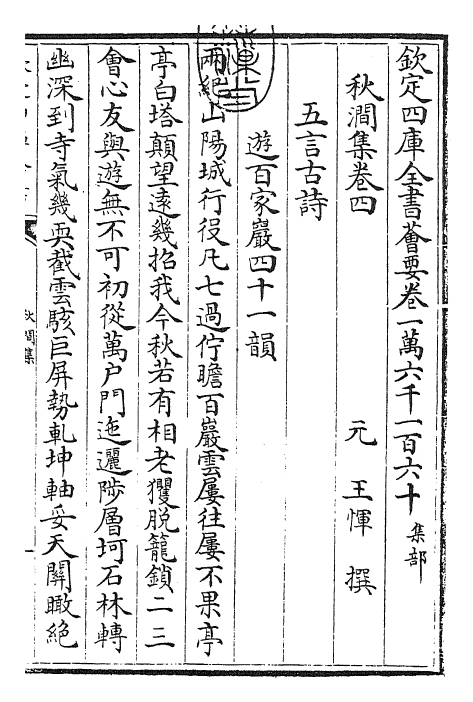 欽定四庫全書薈要卷一萬六千一百六十集部
秋澗集卷四
元 王惲 撰
五言古詩
遊百家巖四十一韻
兩絕山陽城行役凡七過佇瞻百巖雲屢往屢不果亭
亭白塔顛望遠幾招我今秋若有相老玃脫籠鎖二三
會心友與遊無不可初從萬户門迤邐陟層坷石林轉
幽深到寺氣幾奭截雲駭巨屏勢軋坤軸妥天關瞰絕
秋澗集
一